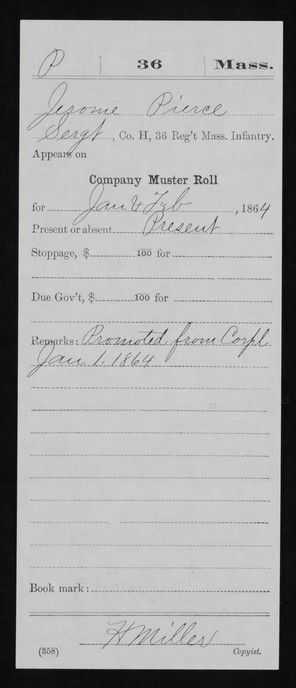 P | 36 | Mass.
Jerome Pierce
Sergt, Co. H, 36 Reg't Mass. Infantry.
Appears on
Company Muster Roll
for Jan & Feb, 1864
Present or absent Present
Stoppage, $ 100 for
Due Gov't, $ 100 for
Remarks: Promoted from Corpl
Jan 1. 1864
Book mark:
H Miller
(358) Copyist.